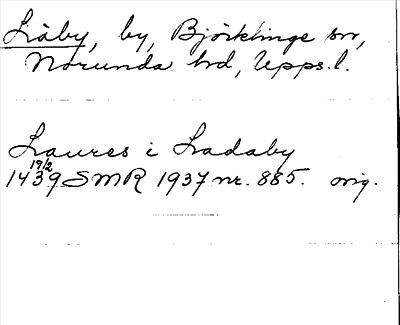 Låby, by, Björklinge sn,
Norunda hd, Upps. l.
Laures i Ladaby
19/2
1439 SMR 1937 nr. 885. orig.